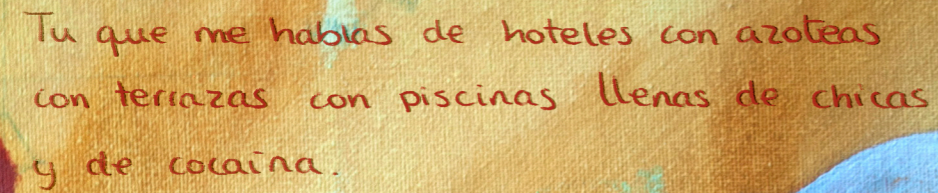 Tu que me hablas de hoteles con azoteas
con terrazas con piscinas llenas de chicas
y de cocaína.